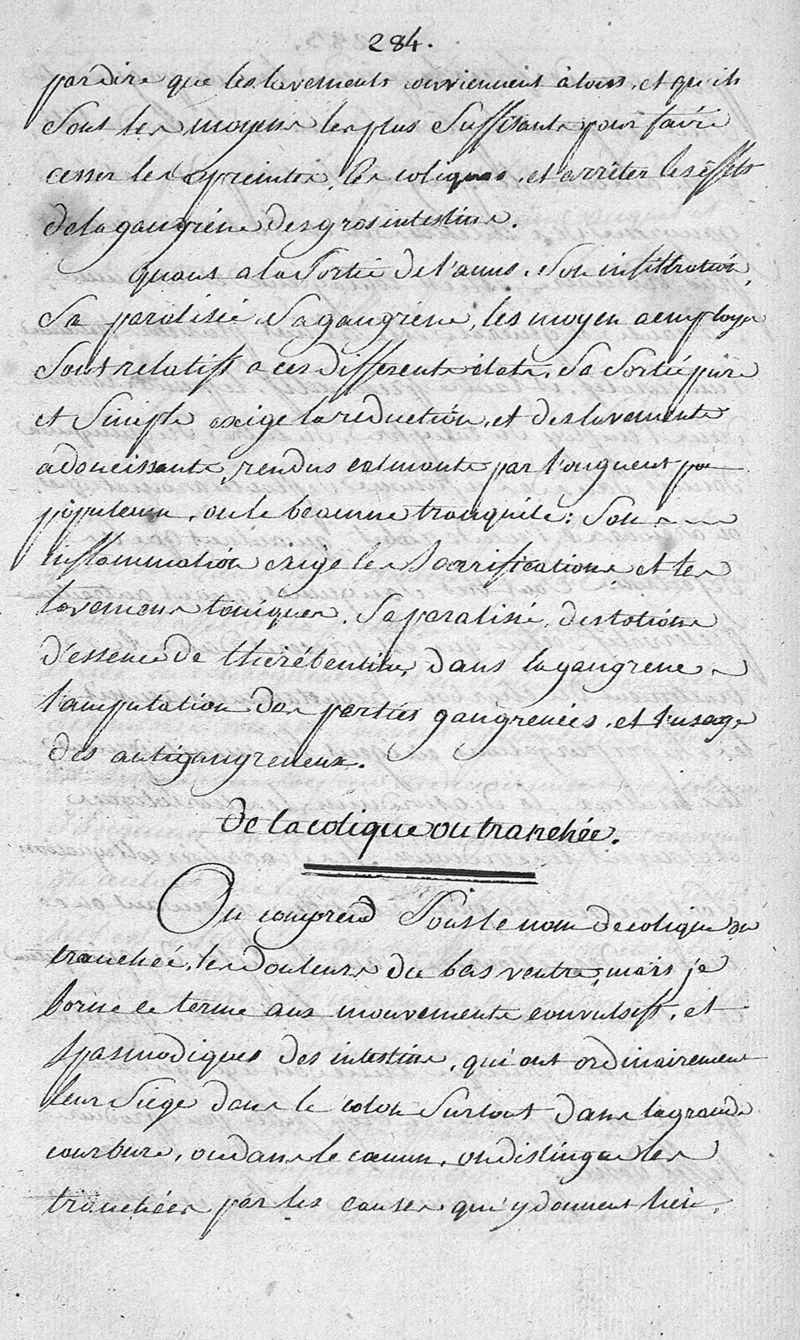 284.
par dire que les lavements conviennent à tous, et qu'ils
Sont les moyens les plus Suffisants pour faire
cesser les epreintes, les coliques, et arrêter les effets
de la gangréne des gros intestins.
quant a la Sortie de l'anus, Son infiltration,
Sa paralisie, Sa gangréne, les moyen a employer
Sont relatifs a ces differents états, Sa Sortie pure
et Simple exige la réduction, et des lavements
adoucissants, rendus calmants par l'onguent po
populeum, ou le beaume tranquile: Son
inflammation exige les Scarrifications et les
lavements toniques, Sa paralisie, des lotions
d'essence de thérébentine, dans la gangrene
l'amputation des parties gangrenées, et l'usage
des antigangreneux.
de la colique ou tranchée.
On comprend Sous le nom de colique ou
tranchée, les douleurs du bas ventre, mais je
borne ce terme aux mouvements convulsifs, et
Spasmodiques des intestins, qui ont ordinairement
leur Siège dans le colon Surtout dans la grande
courbure, ou dans le cœcum, on distingue les
tranchées par les causes qui y donnent lieu,